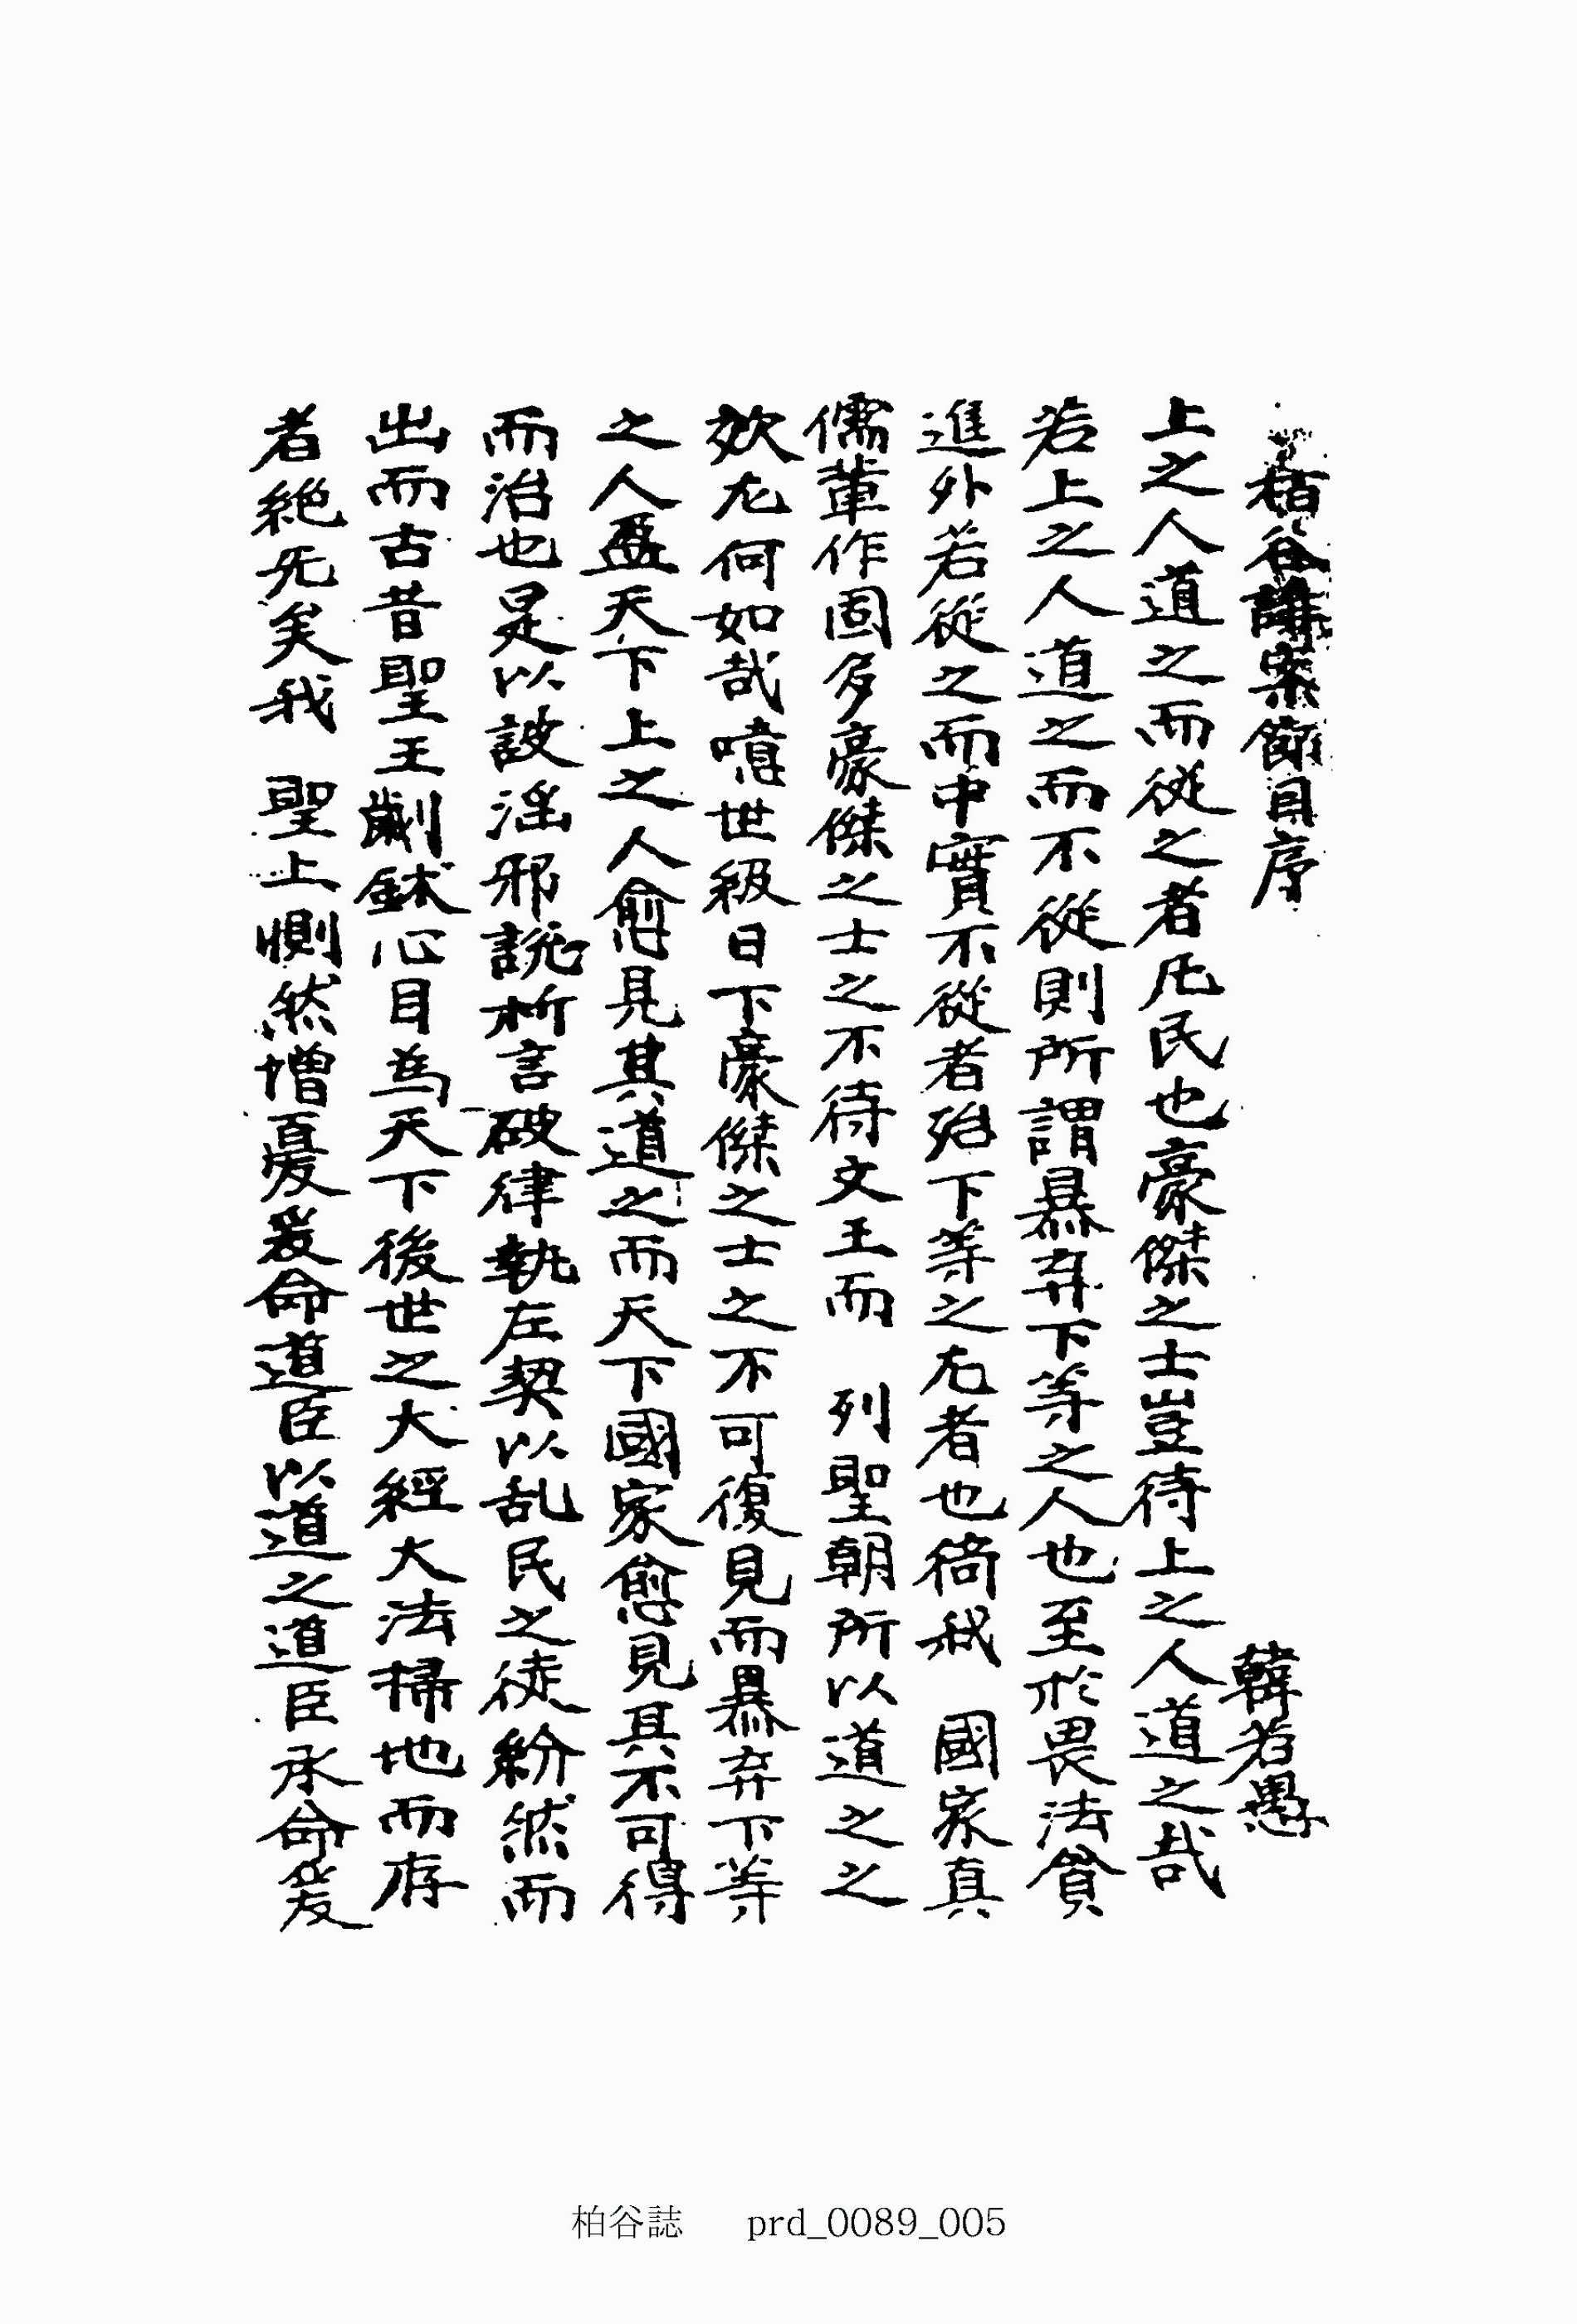 栢谷講案節目序
韓若愚
上之人道之而從之者凡民也豪傑之士豈待上之人道之哉
若上之人道之而不從則所謂暴弃下等之人也至於畏法貪
進外若從之而中實不從者殆下等之尤者也猗我 國家真
儒輩作固多豪傑之士之不待文王而 列聖朝所以道之之
效尤何如哉噫世級日下豪傑之士之不可復見而暴弃下等
之人盈天下上之人愈見其道之而天下國家愈見其不可得
而治也是以詖淫邪說析言破律執左契以乱民之徒紛然而
出而古昔聖王劌鉥心目為天下後世之大經大法掃地而存
者絶无矣我 聖上惻然增憂爰命道臣以道之道臣承命爰
柏谷誌 prd_0089_005